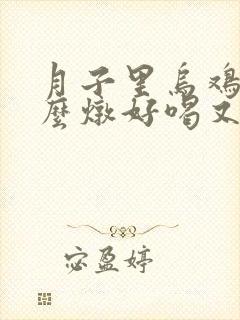 月子里乌鸡
麽炖好喝又
宓盈婷